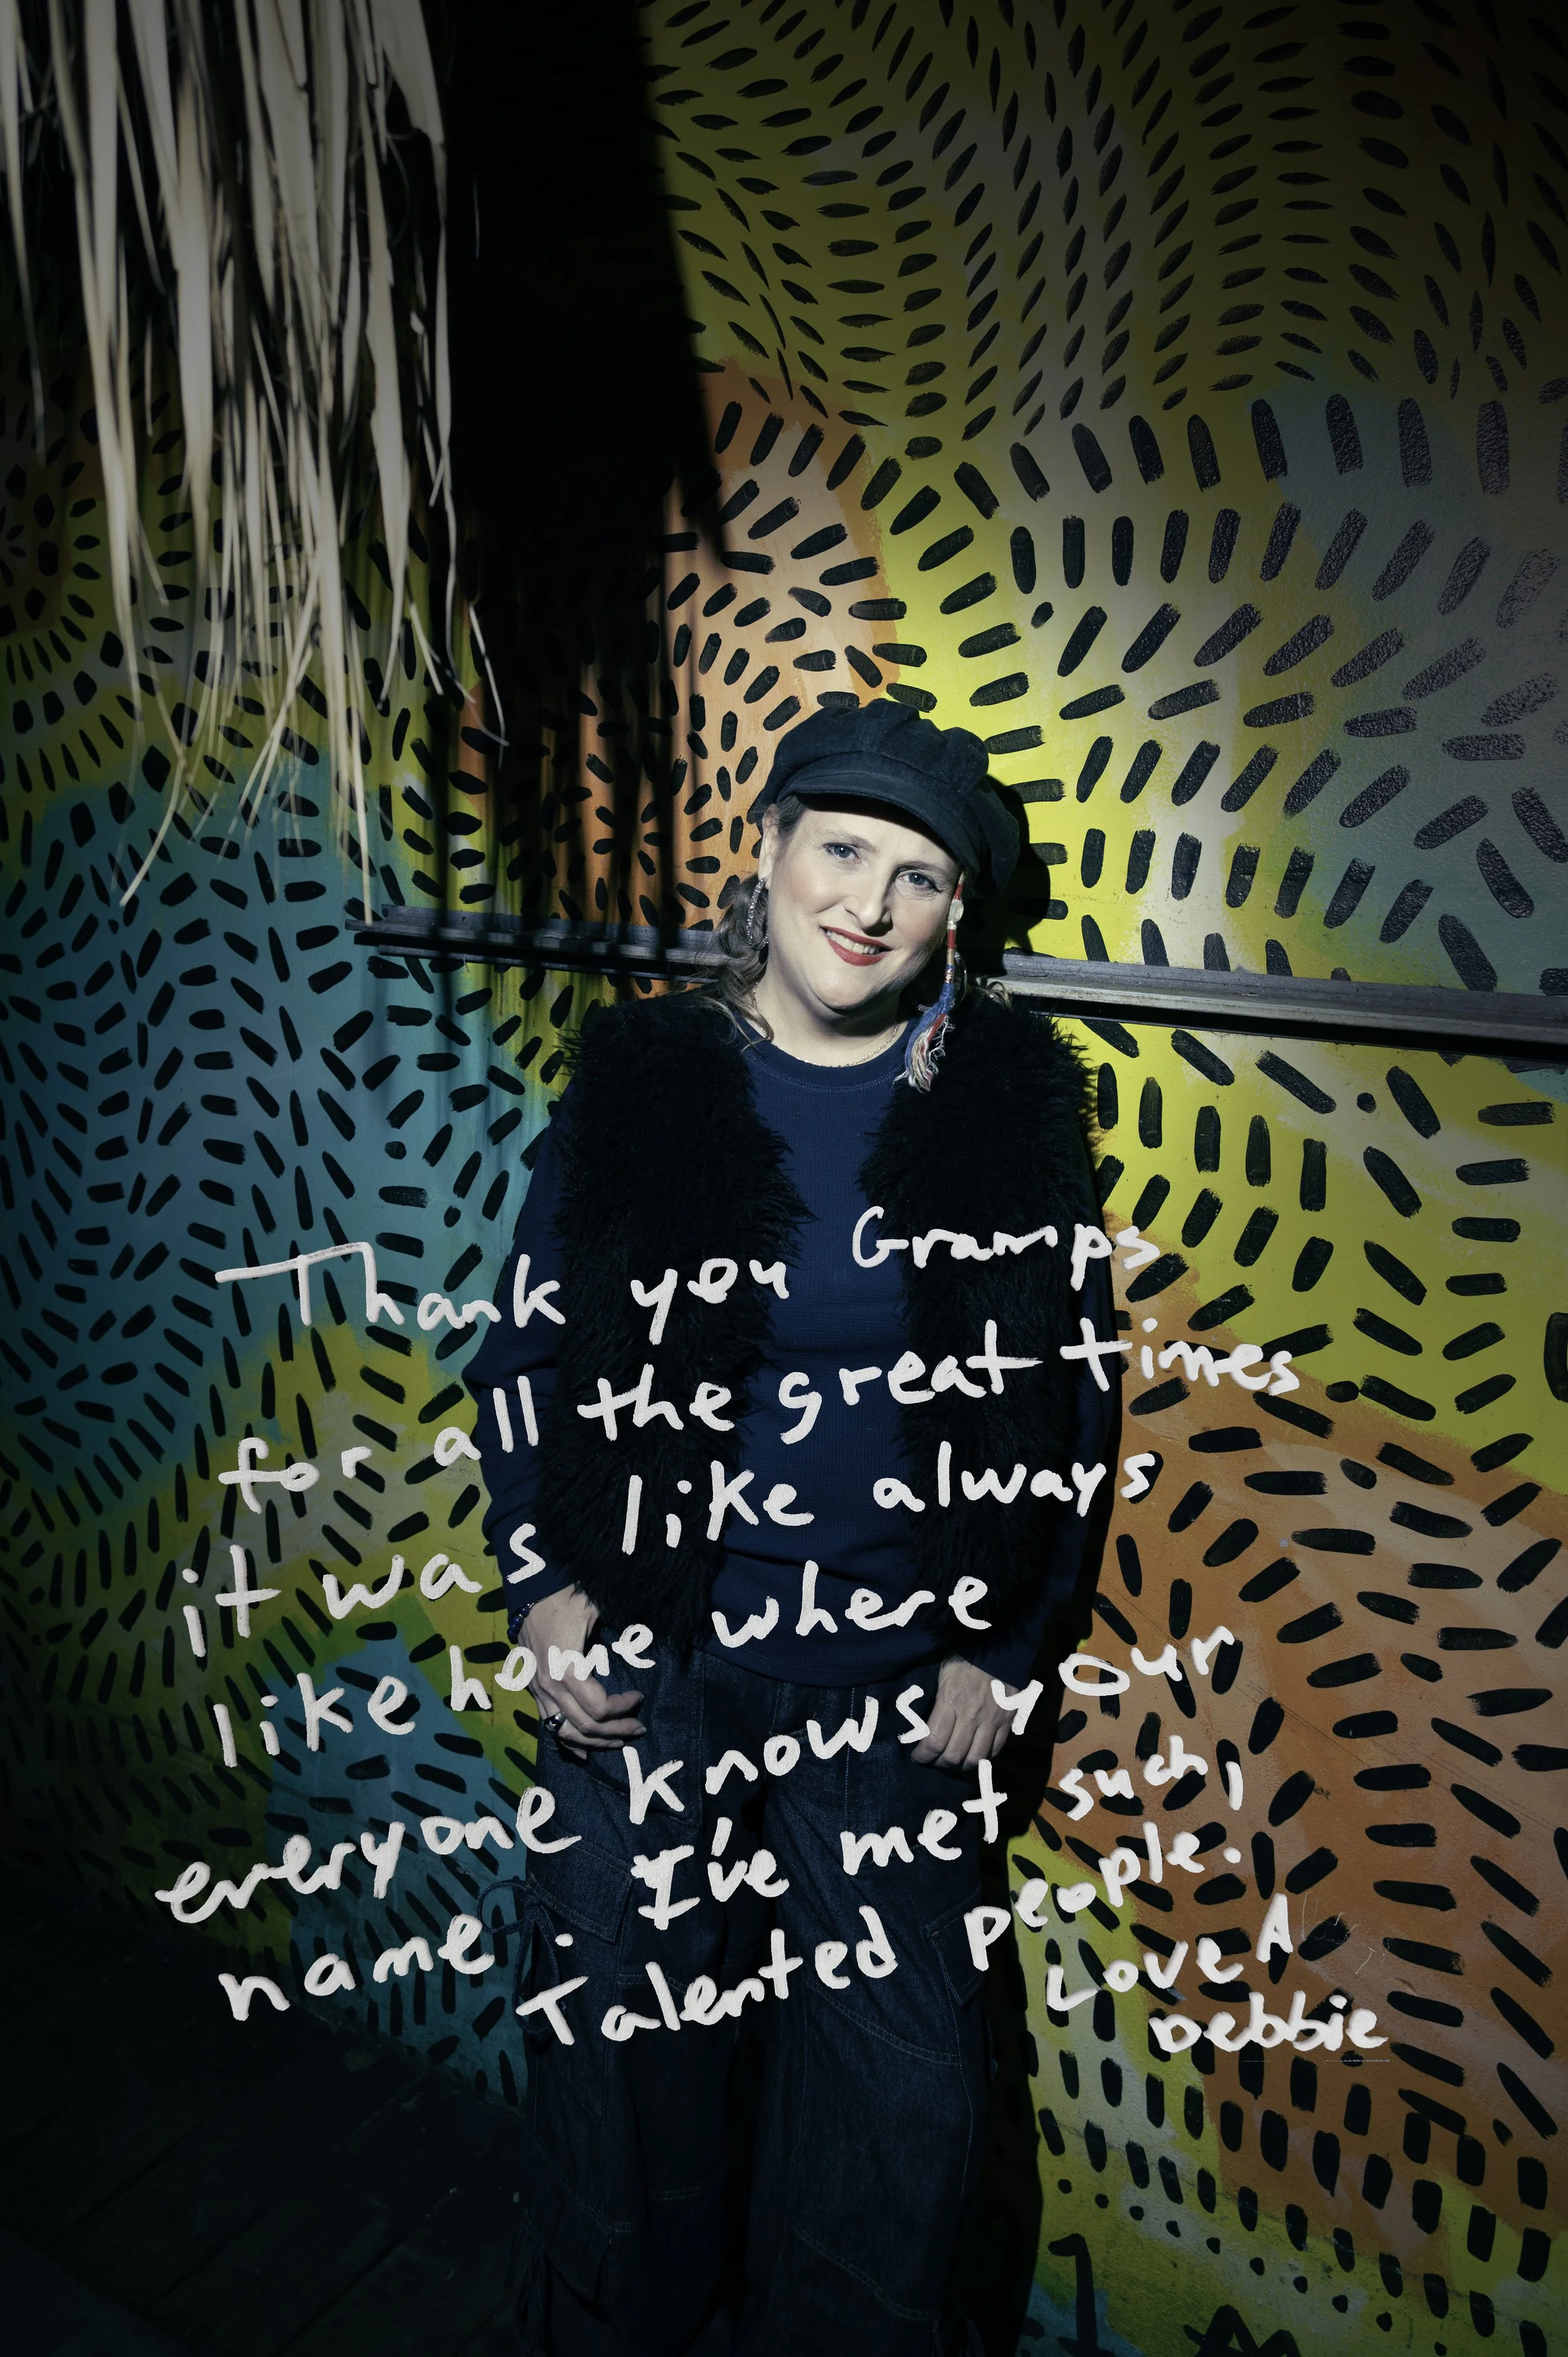 Thank you Gramps
for all the great times
it was like always
like home where
everyone knows your
name. I've met such,
Talented people.
Love A
Debbie